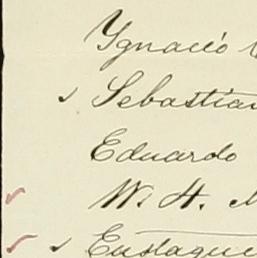 Ygnacio
Sebastian
Eduardo
W. H.
Eustaque